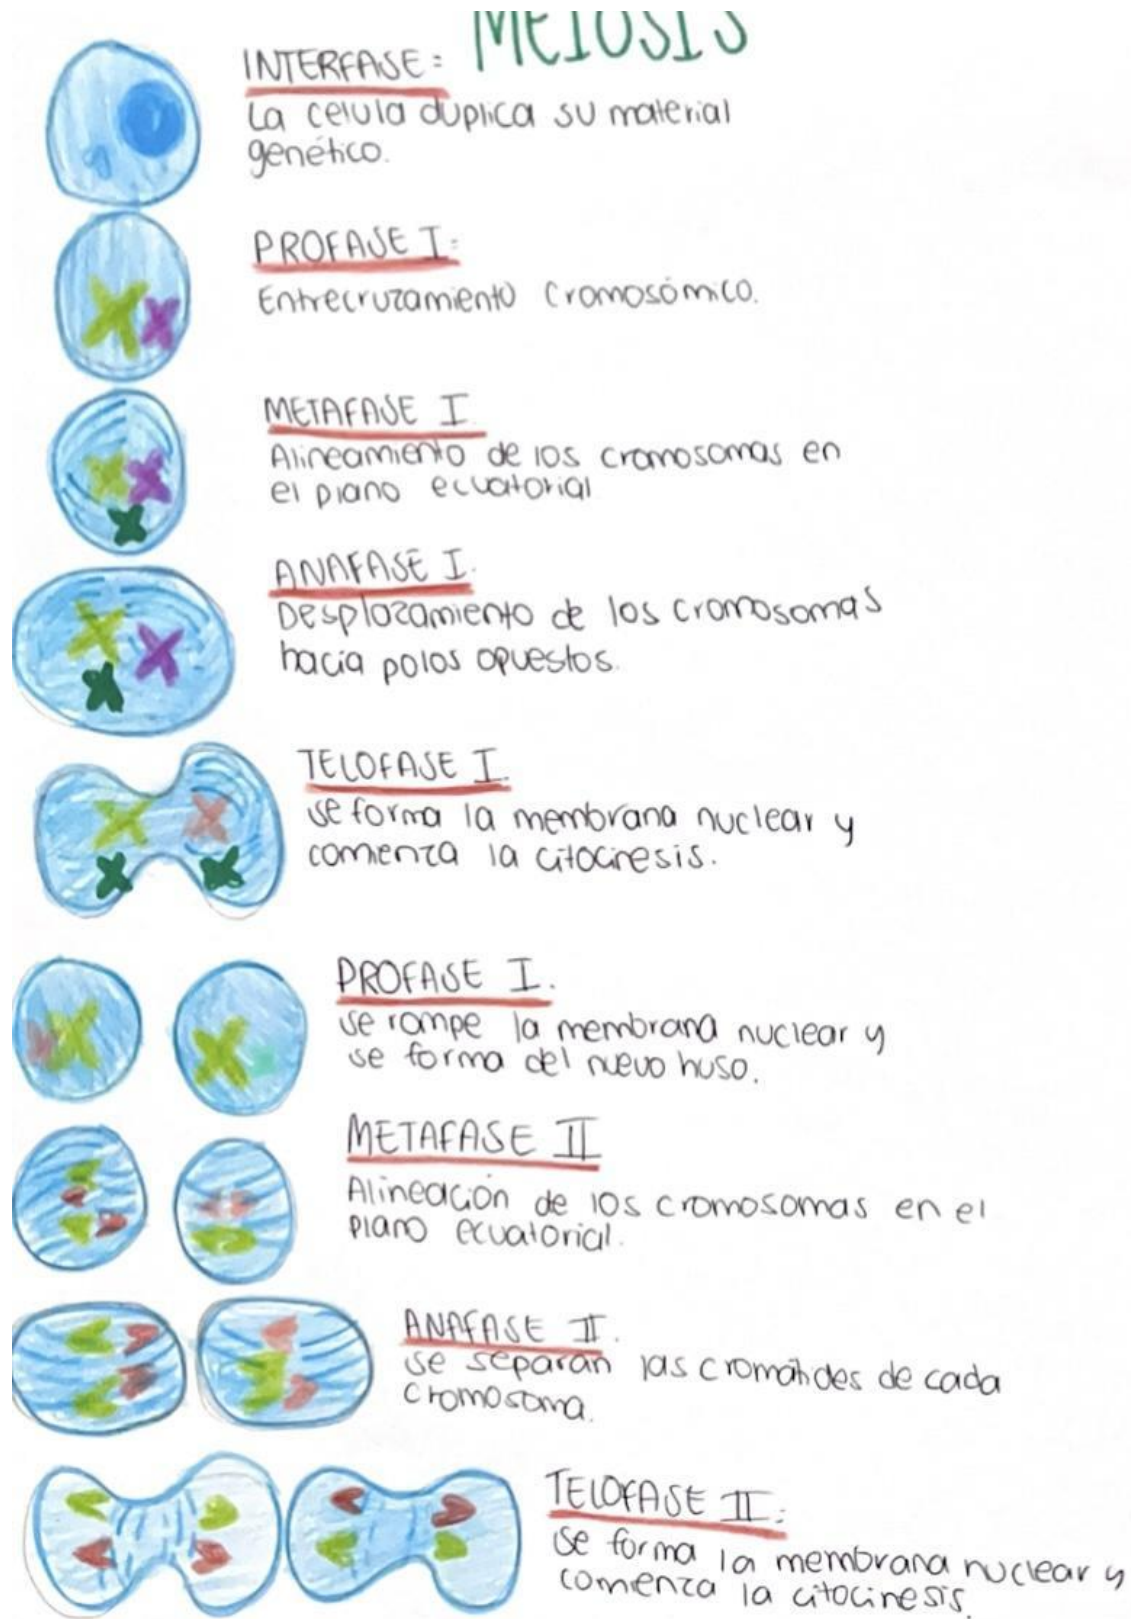 MEIOSIS
INTERFASE:
La celula duplica su material
genético.
PROFASE I:
Entrecruzamiento cromosómico.
METAFASE I
Alineamiento de los cromosomas en
el plano ecuatorial
ANAFASE I.
Desplazamiento de los cromosomas
hacia polos opuestos.
TELOFASE I.
se forma la membrana nuclear y
comienza la citocinesis.
PROFASE I.
se rompe la membrana nuclear y
se forma del nuevo huso.
METAFASE II
Alineación de los cromosomas en el
plano ecuatorial.
ANAFASE II.
se separan las cromatides de cada
cromosoma.
TELOFASE II:
se forma la membrana nuclear y
comienza la citocinesis.